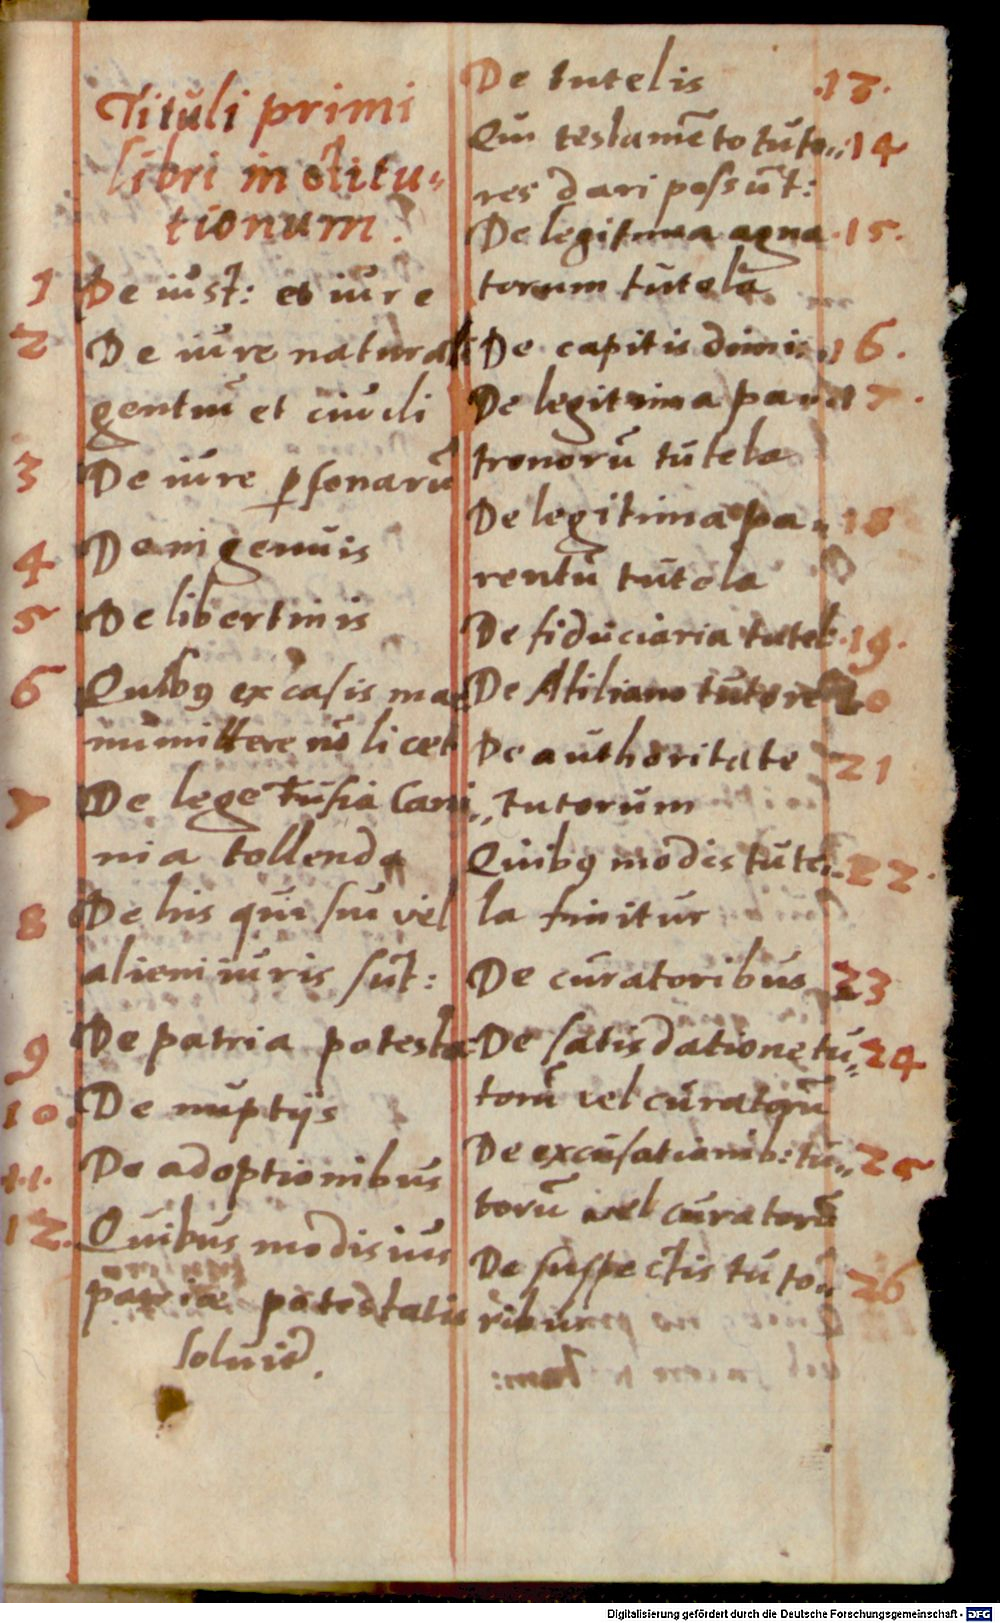 Tituli primi
libri institu-
tionum.
1 De iust: et iure
2 De iure naturali
gentiū et ciuili
3 De iure psonarū
4 De ingenuis
5 De libertinis
6 Quibꝫ ex casis ma
numittere nō licet
7 De lege Fusia Cani„
nia tollenda
8 De his qui sui vel
alieni iuris sūt:
9 De patria potesta:
10. De nuptijs
11. De adoptionibus
12. Quibus modis ius
patriæ potestatis
soluit̄.
De tutelis .13.
Qui testamēto tuto„ 14
res dari possūt:
De legitima agna .15.
torum tutela
De capitis dimi: 16.
De legitima pa 17.
tronorū tutela
De legitima pa„ 18
rentū tutela
De fiduciaria tutel: .19.
De Atiliano tutore 20
De authoritate 21
tutorum
Quibꝫ modis tute„ 22.
la finitur
De curatoribus 23
De satisdatione tu„ 24
torū vel curatorū
De excusationib: tu„ 25
torū vel curatorū
De suspectis tuto„ 26
ribus
Digitalisierung gefördert durch die Deutsche Forschungsgemeinschaft - DFG